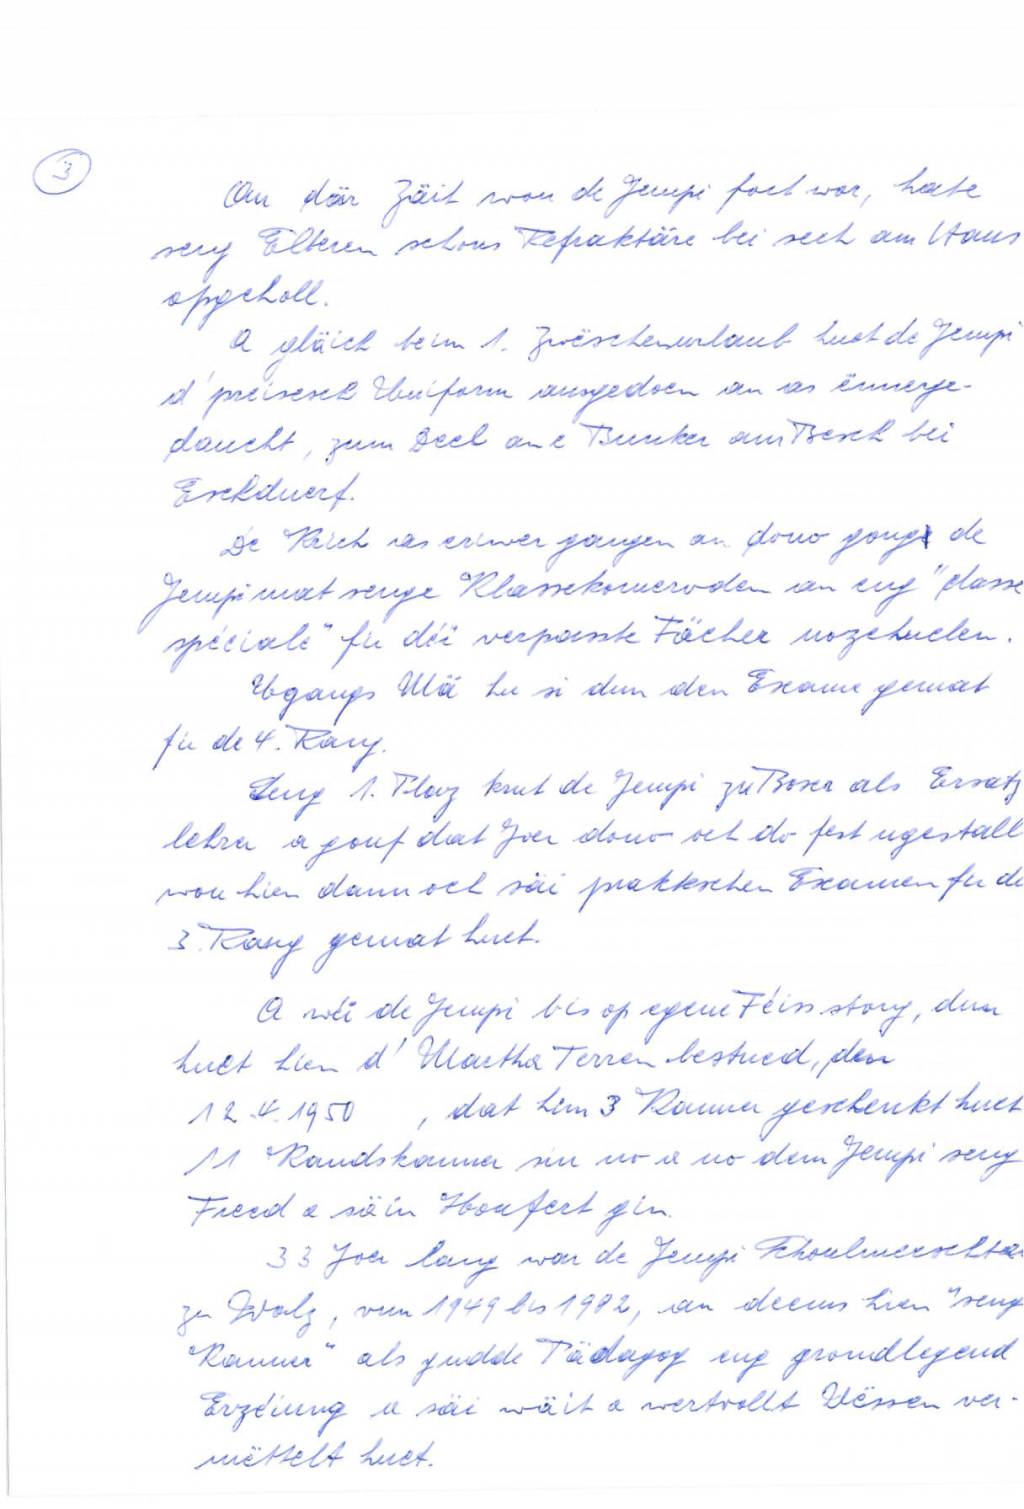 3
An där Zäit wou de Jempi fort war, hate
seng Elteren schons Refraktäre bei sech am Haus
opgeholl.
A gläich beim 1. Zwëschenurlaub huet de Jempi
d'préisesch Uniform ausgedoen an as ënnerge-
daucht, zum Deel an e Bunker am Besch bei
Eschduerf.
De Krich as eriwer gangen an dono goung de
Jempi mat senge Klassekomeroden an eng "classe
spéciale" fir déi verpasste Fächer nozehuelen.
Ugangs Mä hu si dun den Exame gemat
fir de 4. Rang.
Seng 1. Plaz krut de Jempi zu Boxer als Ersatz
lehrer a gouf dat Joer dono och do fest ugestall
wou hien dann och säi praktschen Examen fir de
3. Rang gemat huet.
A wéi de Jempi bis op egene Féiss stong, dun
huet hien d'Martha Terren bestued, den
12.4.1950 , dat him 3 Kanner geschenkt huet
11 Kandskanner sin no a no dem Jempi seng
Freed a säin Houfert gin.
33 Joer lang war de Jempi Schoulmeeschter
zu Wolz, vun 1949 bis 1982, an deems hien "seng
Kanner" als gudde Pädagog eng grondlegend
Erzéiung a säi wäit a wertvollt Wëssen ver-
mëttelt huet.